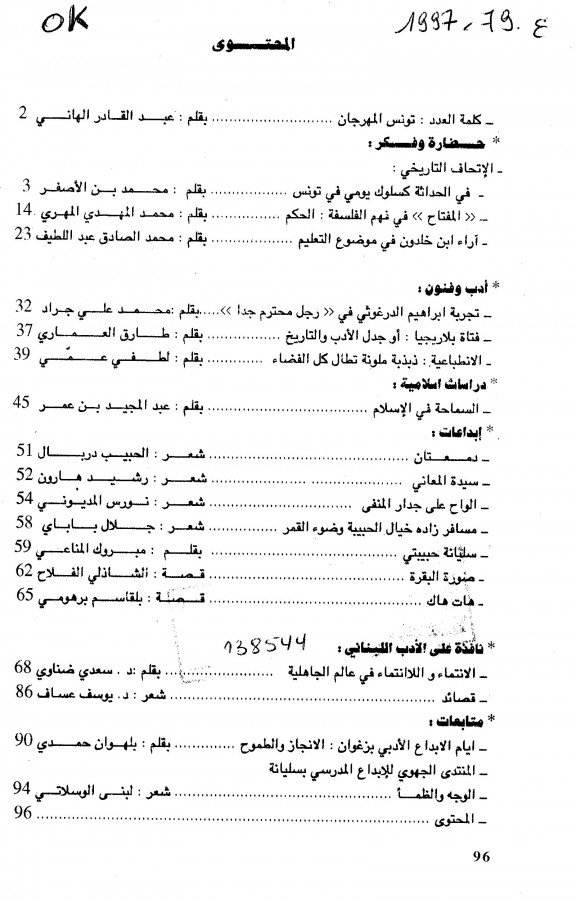 OK
ع. 79. 1997
المحتوى
ـ كلمة العدد : تونس المهرجان ........................ بقلم : عبد القادر الهاني 2
* حضارة وفكر :
ـ الإتحاف التاريخي :
ـ في الحداثة كسلوك يومي في تونس ............... بقلم : محمد بن الأصفر 3
ـ « المفتاح » في نهم الفلسفة : الحكم ............... بقلم : محمد المهدي المهري 14
ـ آراء ابن خلدون في موضوع التعليم ............... بقلم : محمد الصادق عبد اللطيف 23
* أدب وفنون :
ـ تجربة ابراهيم الدرغوثي في « رجل محترم جدا ».....بقلم :محمد علي جراد 32
ـ فتاة بلاريجيا : أو جدل الأدب والتاريخ ............... بقلم : طارق العماري 37
ـ الانطباعية : ذبذبة ملونة تطال كل الفضاء ............ بقلم : لطفي عمّي 39
* دراسات اسلامية :
ـ السماحة في الإسلام ............................ بقلم : عبد المجيد بن عمر 45
* إبداعات :
ـ دمعتان ............................ شعر : الحبيب دربال 51
ـ سيدة المعاني ............................ شعر : رشيد هارون 52
ـ الواح على جدار المنفى ..................... شعر : نورس المديوني 54
ـ مسافر زاده خيال الحبيبة وضوء القمر .............. شعر : جلال باباي 58
ـ سليانة حبيبتي ............................ بقلم : مبروك المناعي 59
ـ صورة البقرة ............................ قصة : الشاذلي الفلاح 62
ـ هات هاك ............................ قصة : بلقاسم برهومي 65
138544
* نافذة على الأدب اللبناني :
ـ الانتماء و اللاانتماء في عالم الجاهلية ............... بقلم :د. سعدي ضناوي 68
ـ قصائد ............................ شعر : د. يوسف عساف 86
* متابعات :
ـ ايام الابداع الأدبي بزغوان : الانجاز والطموح .......... بقلم : بلهوان حمدي 90
ـ المنتدى الجهوي للإبداع المدرسي بسليانة
ـ الوجه والظمأ ............................ شعر : لبنى الوسلاتي 94
ـ المحتوى ............................ 96
96